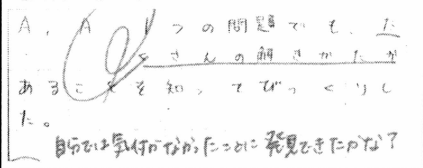 つの問題でも、た
さんの解きかたが
あることを知ってびっくりし
た。
自分では気付かなかったことに発見できたかな?